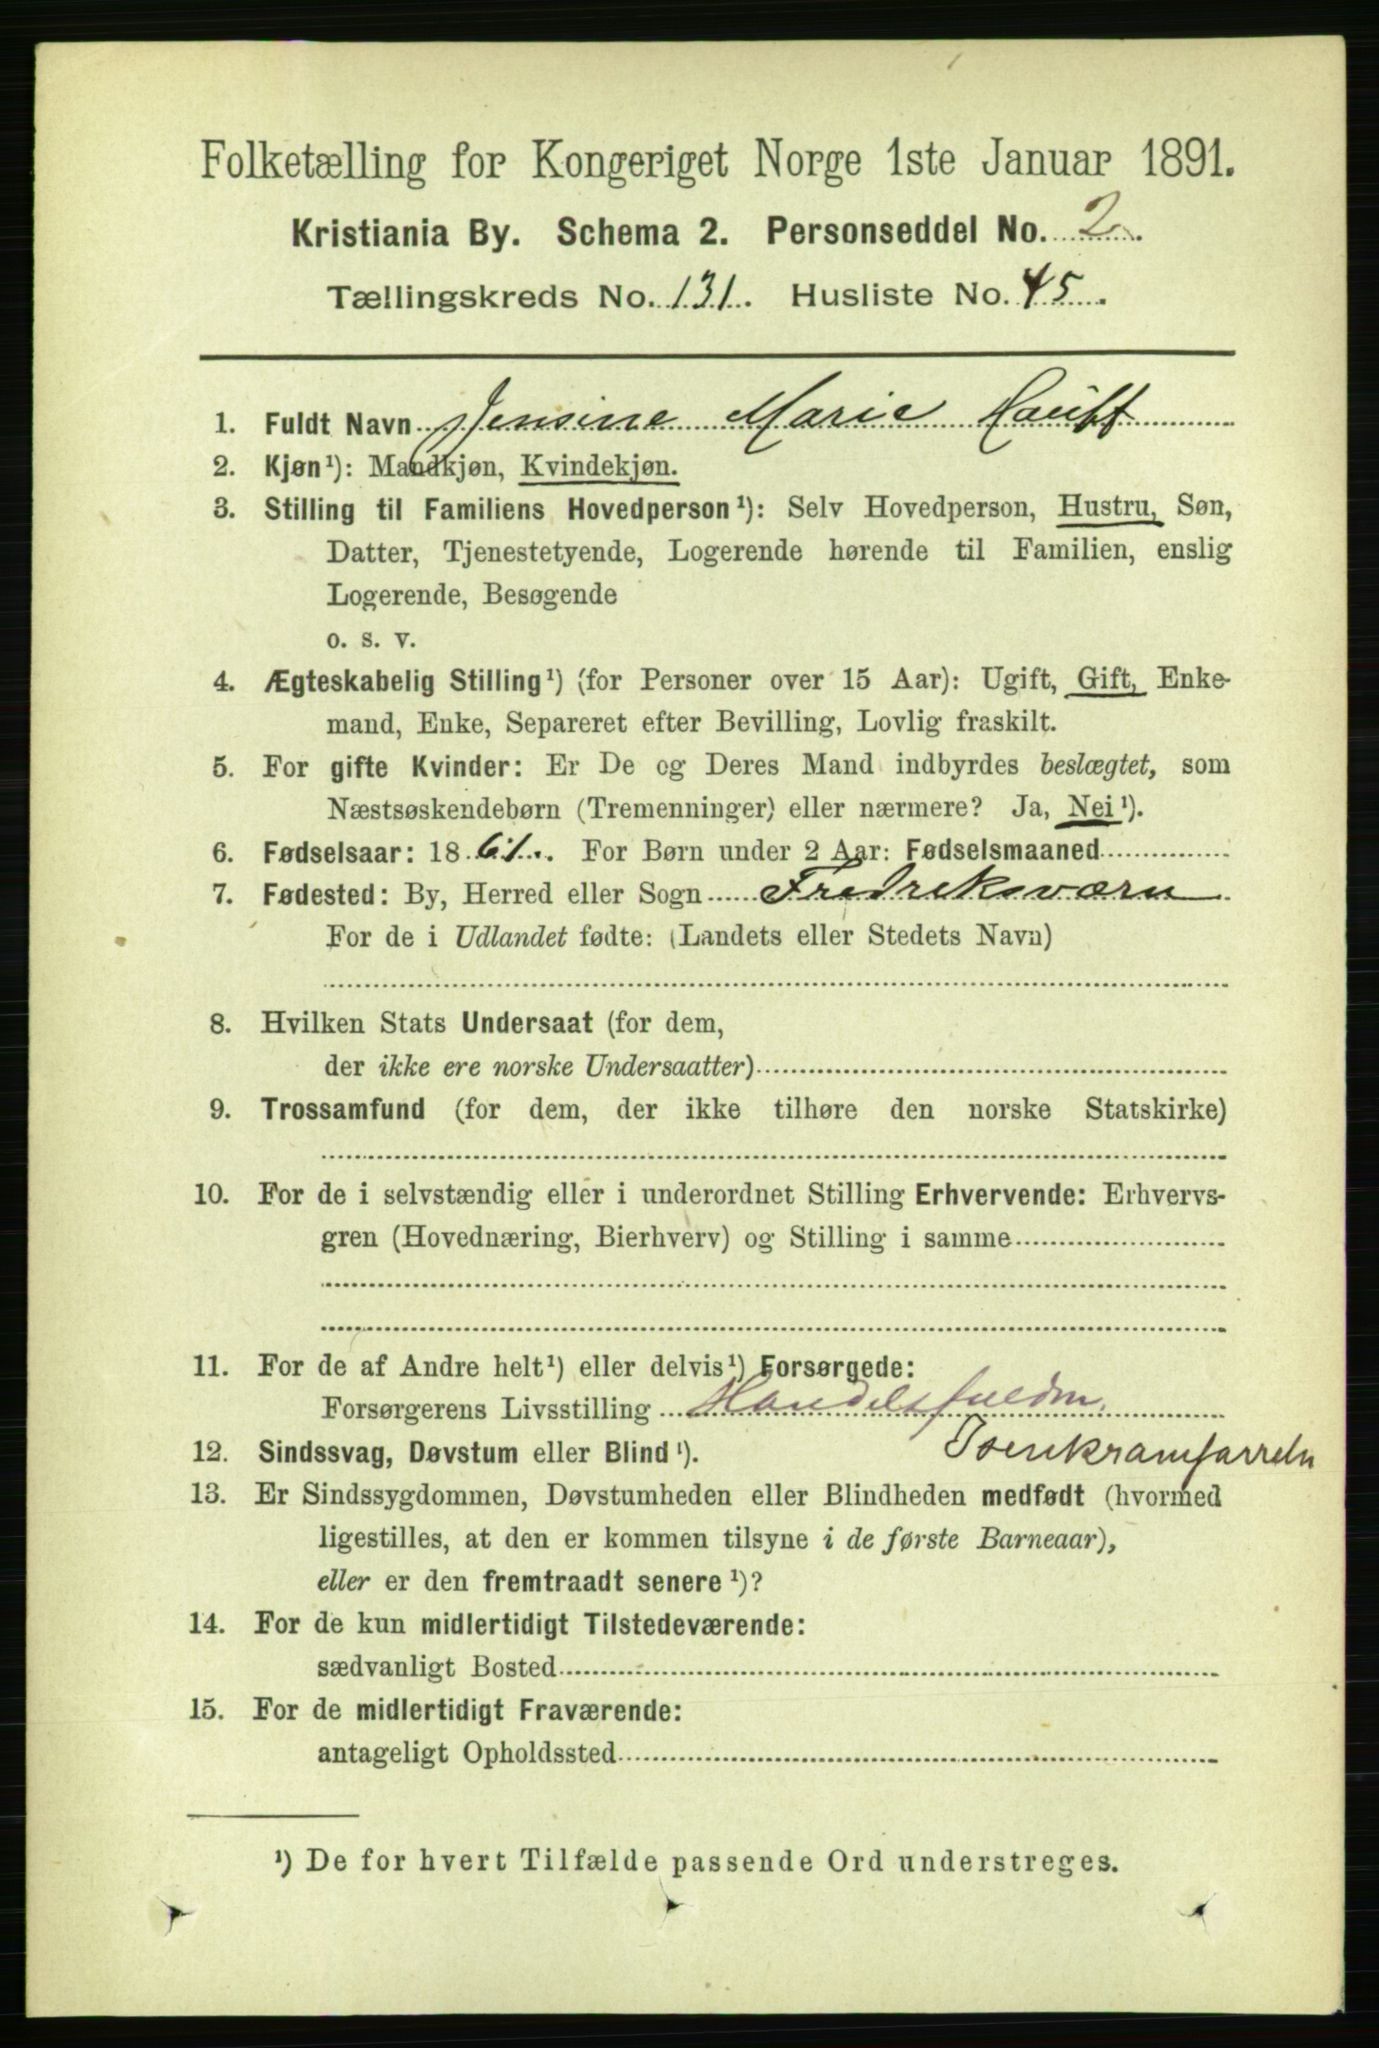 Folketælling for Kongeriget Norge 1ste Januar 1891.
Kristiania By. Schema 2. Personseddel No. 2
Tællingskreds No. 131. Husliste No. 45.
1. Fuldt Navn Jensine Marie Hauff
2. Kjøn¹): Mandkjøn, Kvindekjøn.
3. Stilling til Familiens Hovedperson¹): Selv Hovedperson, Hustru, Søn,
Datter, Tjenestetyende, Logerende hørende til Familien, enslig
Logerende, Besøgende
o. s. v.
4. Ægteskabelig Stilling¹) (for Personer over 15 Aar): Ugift, Gift, Enke-
mand, Enke, Separeret efter Bevilling, Lovlig fraskilt.
5. For gifte Kvinder: Er De og Deres Mand indbyrdes beslægtet, som
Næstsøskendebørn (Tremenninger) eller nærmere? Ja, Nei¹).
6. Fødselsaar: 1861. For Børn under 2 Aar: Fødselsmaaned
7. Fødested: By, Herred eller Sogn Fredreksværn
For de i Udlandet fødte: (Landets eller Stedets Navn)
8. Hvilken Stats Undersaat (for dem,
der ikke ere norske Undersaatter)
9. Trossamfund (for dem, der ikke tilhøre den norske Statskirke)
10. For de i selvstændig eller i underordnet Stilling Erhvervende: Erhvervs-
gren (Hovednæring, Bierhverv) og Stilling i samme
11. For de af Andre helt¹) eller delvis¹) Forsørgede:
Forsørgerens Livsstilling Handelsfuldm.
12. Sindssvag, Døvstum eller Blind¹).
13. Er Sindssygdommen, Døvstumheden eller Blindheden medfødt (hvormed
ligestilles, at den er kommen tilsyne i de første Barneaar),
eller er den fremtraadt senere¹)?
14. For de kun midlertidigt Tilstedeværende:
sædvanligt Bosted
15. For de midlertidigt Fraværende:
antageligt Opholdssted
¹) De for hvert Tilfælde passende Ord understreges.